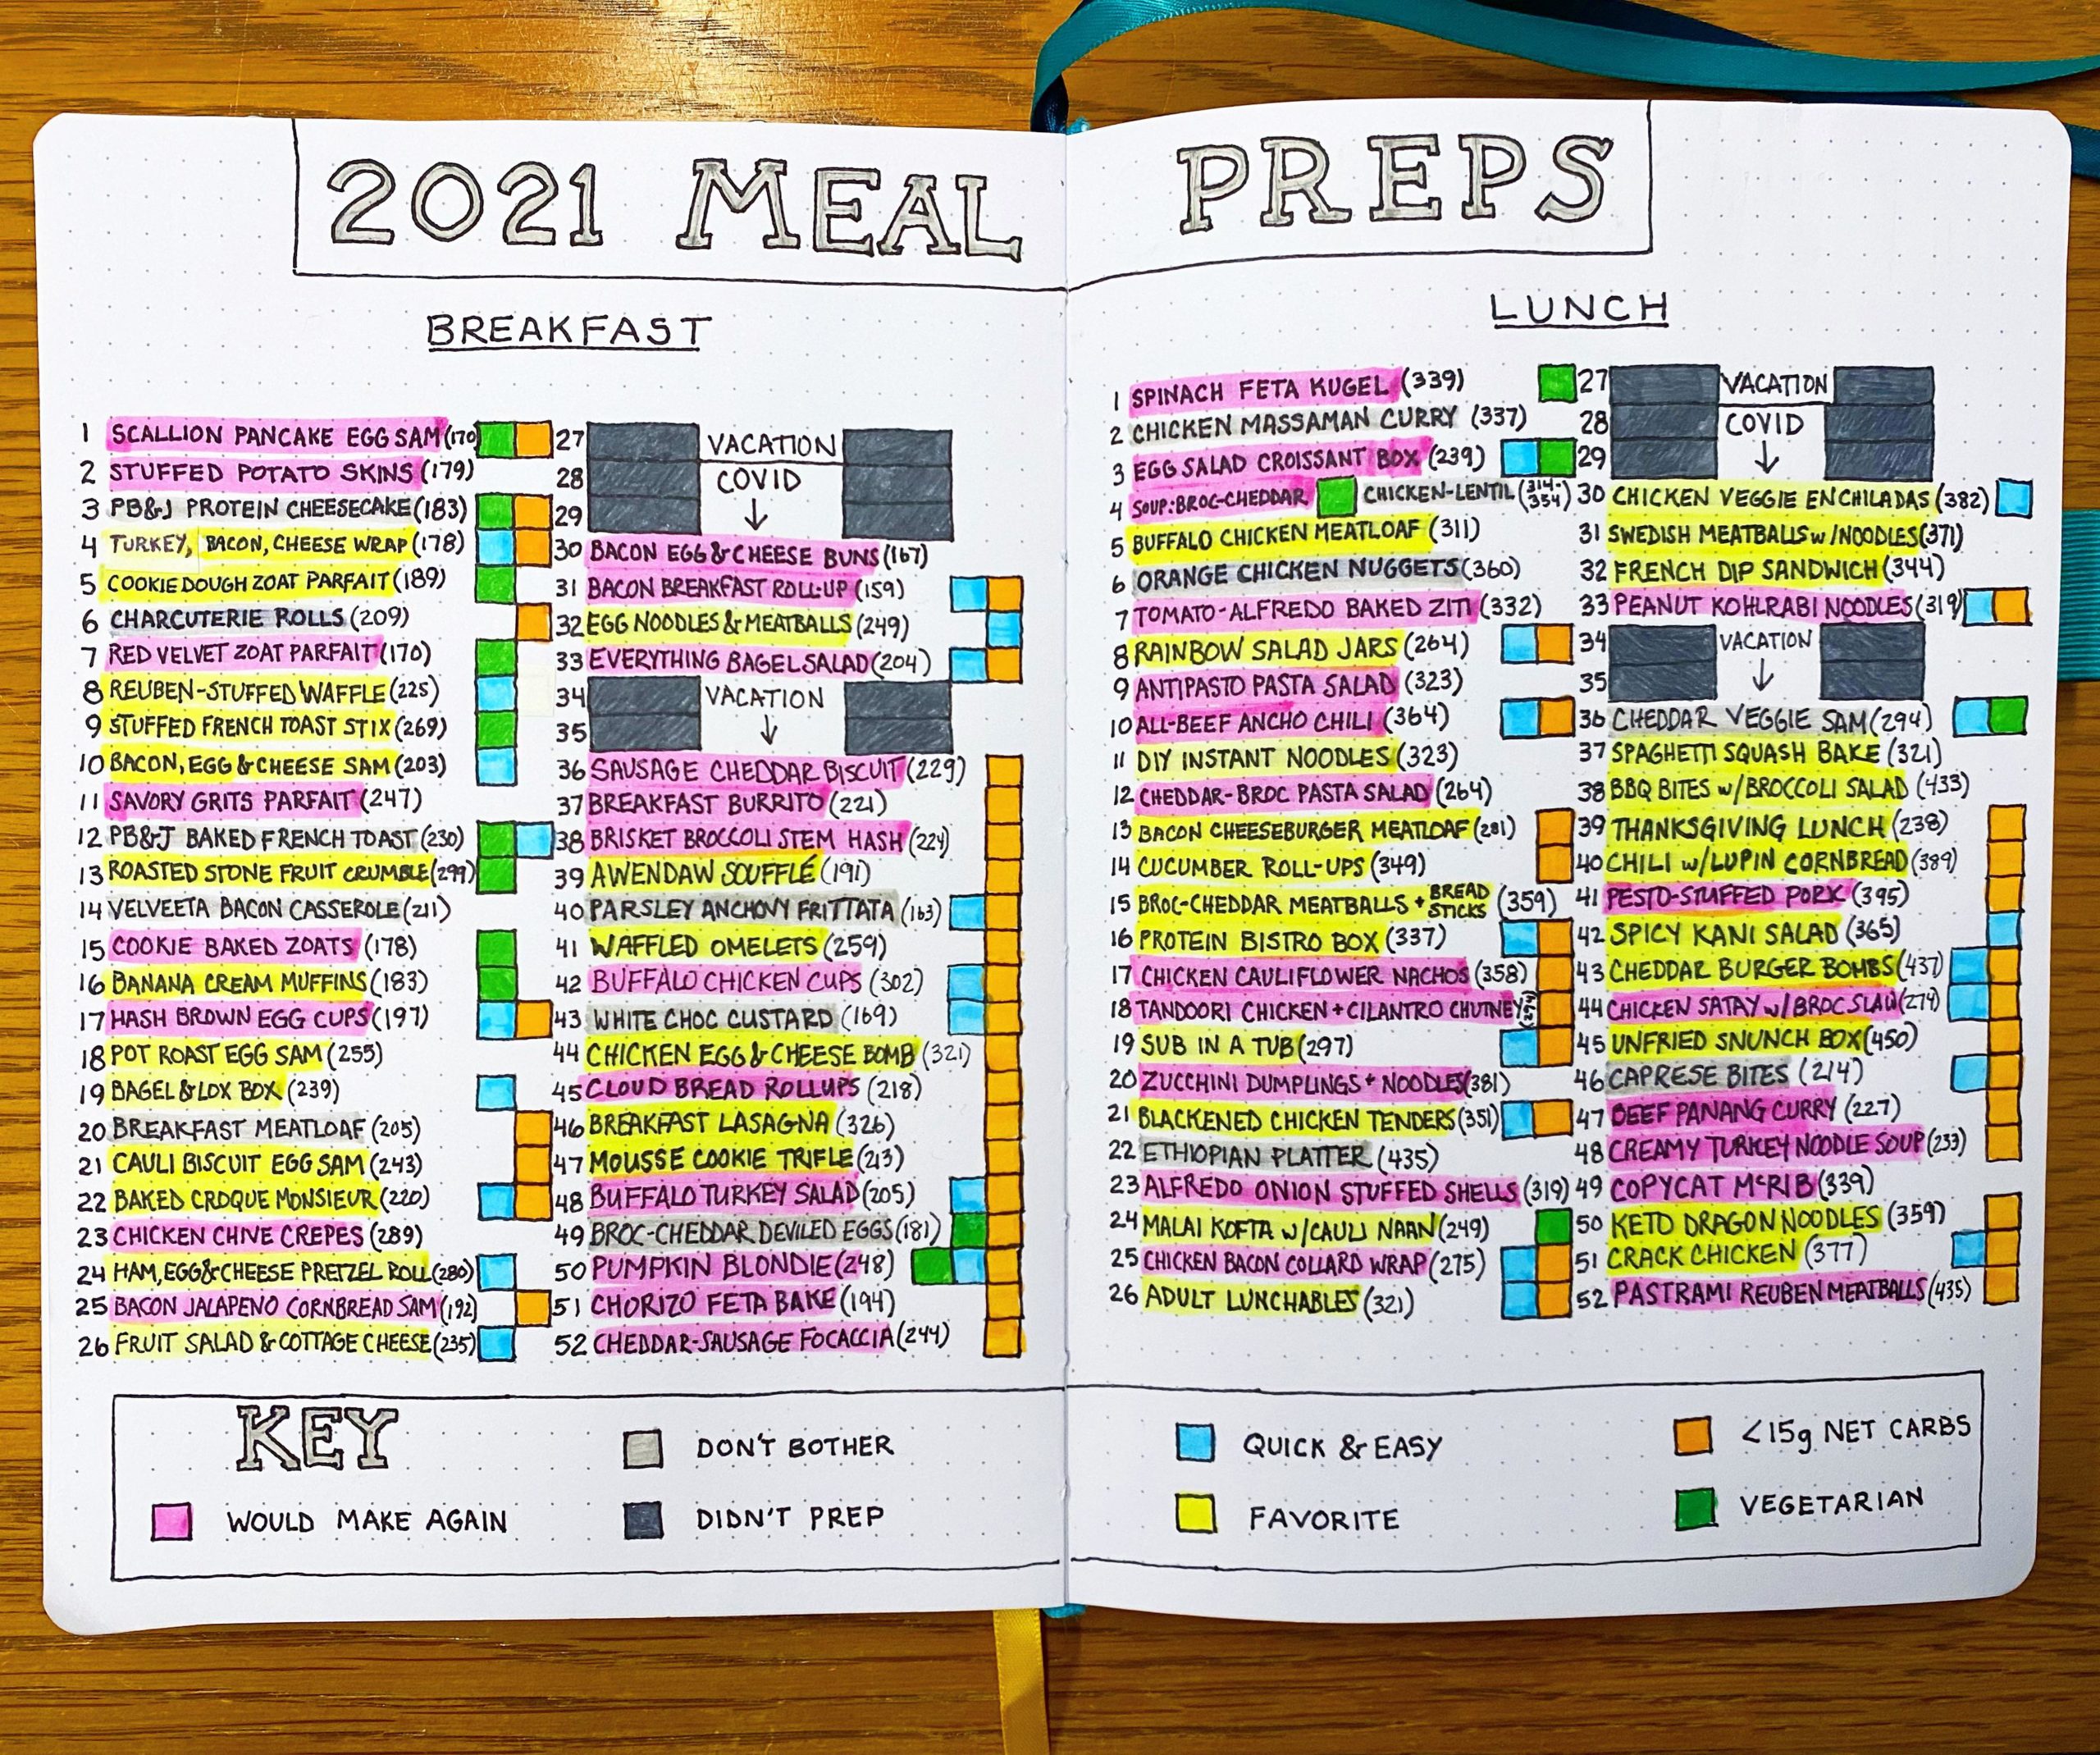 2021 MEAL PREPS
BREAKFAST
1 SCALLION PANCAKE EGG SAM (170)
2 STUFFED POTATO SKINS (179)
3 PB&J PROTEIN CHEESECAKE (183)
4 TURKEY, BACON, CHEESE WRAP (178)
5 COOKIE DOUGH ZOAT PARFAIT (189)
6 CHARCUTERIE ROLLS (209)
7 RED VELVET ZOAT PARFAIT (170)
8 REUBEN-STUFFED WAFFLE (225)
9 STUFFED FRENCH TOAST STIX (269)
10 BACON, EGG & CHEESE SAM (203)
11 SAVORY GRITS PARFAIT (247)
12 PB&J BAKED FRENCH TOAST (230)
13 ROASTED STONE FRUIT CRUMBLE (299)
14 VELVEETA BACON CASSEROLE (211)
15 COOKIE BAKED ZOATS (178)
16 BANANA CREAM MUFFINS (183)
17 HASH BROWN EGG CUPS (197)
18 POT ROAST EGG SAM (255)
19 BAGEL & LOX BOX (239)
20 BREAKFAST MEATLOAF (205)
21 CAULI BISCUIT EGG SAM (243)
22 BAKED CROQUE MONSIEUR (220)
23 CHICKEN CHIVE CREPES (289)
24 HAM, EGG & CHEESE PRETZEL ROLL (280)
25 BACON JALAPENO CORNBREAD SAM (192)
26 FRUIT SALAD & COTTAGE CHEESE (235)
27 VACATION
28 COVID
29 ↓
30 BACON EGG & CHEESE BUNS (167)
31 BACON BREAKFAST ROLL-UP (159)
32 EGG NOODLES & MEATBALLS (249)
33 EVERYTHING BAGEL SALAD (204)
34 VACATION
35 ↓
36 SAUSAGE CHEDDAR BISCUIT (229)
37 BREAKFAST BURRITO (221)
38 BRISKET BROCCOLI STEM HASH (224)
39 AWENDAW SOUFFLÉ (191)
40 PARSLEY ANCHOVY FRITTATA (163)
41 WAFFLED OMELETS (259)
42 BUFFALO CHICKEN CUPS (302)
43 WHITE CHOC CUSTARD (169)
44 CHICKEN EGG & CHEESE BOMB (321)
45 CLOUD BREAD ROLLUPS (218)
46 BREAKFAST LASAGNA (326)
47 MOUSSE COOKIE TRIFLE (213)
48 BUFFALO TURKEY SALAD (205)
49 BROC-CHEDDAR DEVILED EGGS (181)
50 PUMPKIN BLONDIE (248)
51 CHORIZO FETA BAKE (194)
52 CHEDDAR-SAUSAGE FOCACCIA (244)
LUNCH
1 SPINACH FETA KUGEL (339)
2 CHICKEN MASSAMAN CURRY (337)
3 EGG SALAD CROISSANT BOX (239)
4 SOUP: BROC-CHEDDAR CHICKEN-LENTIL (314-354)
5 BUFFALO CHICKEN MEATLOAF (311)
6 ORANGE CHICKEN NUGGETS (360)
7 TOMATO-ALFREDO BAKED ZITI (332)
8 RAINBOW SALAD JARS (264)
9 ANTIPASTO PASTA SALAD (323)
10 ALL-BEEF ANCHO CHILI (364)
11 DIY INSTANT NOODLES (323)
12 CHEDDAR-BROC PASTA SALAD (264)
13 BACON CHEESEBURGER MEATLOAF (281)
14 CUCUMBER ROLL-UPS (349)
15 BROC-CHEDDAR MEATBALLS + BREAD STICKS (359)
16 PROTEIN BISTRO BOX (337)
17 CHICKEN CAULIFLOWER NACHOS (358)
18 TANDOORI CHICKEN + CILANTRO CHUTNEY
19 SUB IN A TUB (297)
20 ZUCCHINI DUMPLINGS + NOODLES (381)
21 BLACKENED CHICKEN TENDERS (351)
22 ETHIOPIAN PLATTER (435)
23 ALFREDO ONION STUFFED SHELLS (319)
24 MALAI KOFTA w/CAULI NAAN (249)
25 CHICKEN BACON COLLARD WRAP (275)
26 ADULT LUNCHABLES (321)
27 VACATION
28 COVID
29 ↓
30 CHICKEN VEGGIE ENCHILADAS (382)
31 SWEDISH MEATBALLS w/NOODLES (371)
32 FRENCH DIP SANDWICH (344)
33 PEANUT KOHLRABI NOODLES (319)
34 VACATION
35 ↓
36 CHEDDAR VEGGIE SAM (294)
37 SPAGHETTI SQUASH BAKE (321)
38 BBQ BITES w/BROCCOLI SALAD (433)
39 THANKSGIVING LUNCH (238)
40 CHILI w/LUPIN CORNBREAD (389)
41 PESTO-STUFFED PORK (395)
42 SPICY KANI SALAD (365)
43 CHEDDAR BURGER BOMBS (437)
44 CHICKEN SATAY w/BROC SLAW (274)
45 UNFRIED SNUNCH BOX (450)
46 CAPRESE BITES (214)
47 BEEF PANANG CURRY (227)
48 CREAMY TURKEY NOODLE SOUP (233)
49 COPYCAT McRIB (339)
50 KETO DRAGON NOODLES (359)
51 CRACK CHICKEN (377)
52 PASTRAMI REUBEN MEATBALLS (435)
KEY
WOULD MAKE AGAIN
DON'T BOTHER
DIDN'T PREP
QUICK & EASY
FAVORITE
<15g NET CARBS
VEGETARIAN